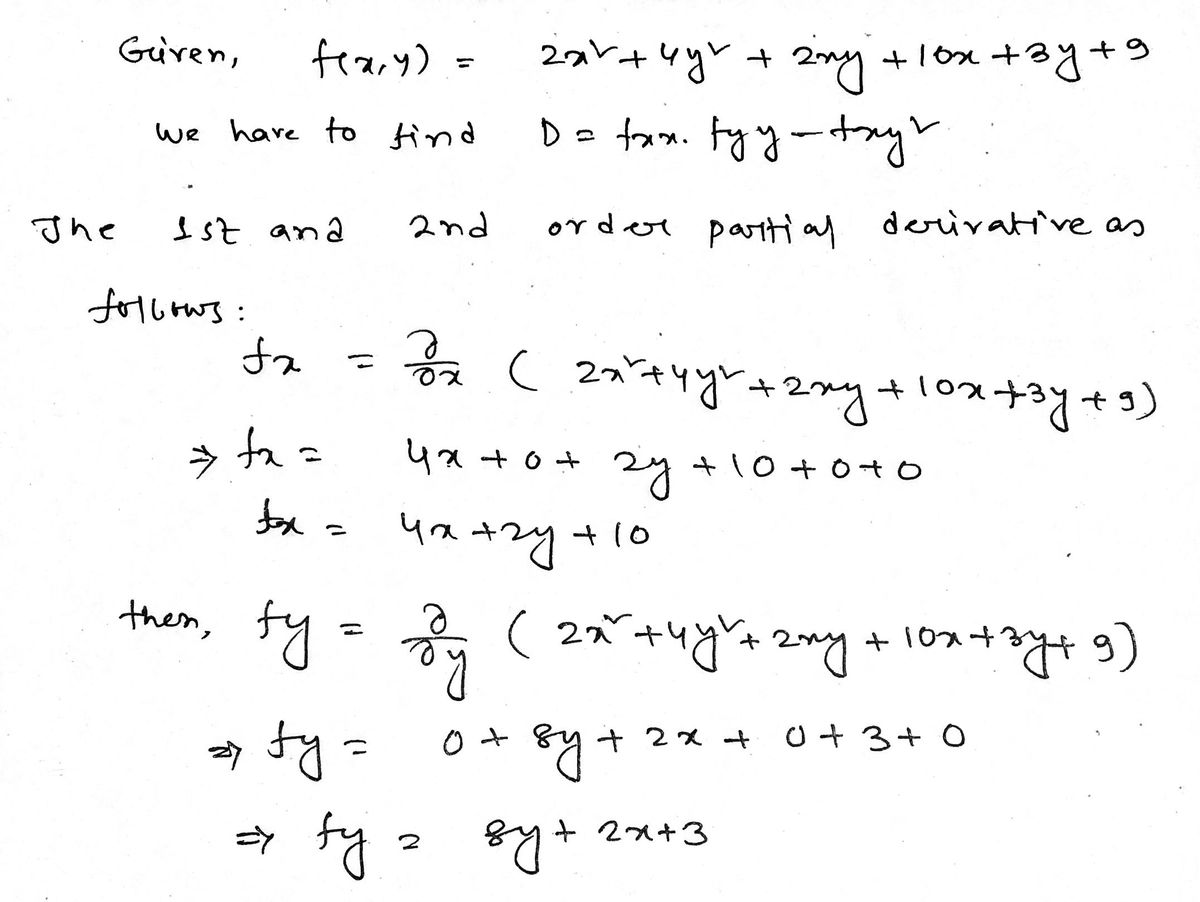 Given, f(x,y) = 2x² + 4y² + 2xy + 10x + 3y + 9
we have to find D = fxx. fyy - fxy²
The 1st and 2nd order partial derivative as
follows:
fx = ∂/∂x ( 2x² + 4y² + 2xy + 10x + 3y + 9)
⇒ fx = 4x + 0 + 2y + 10 + 0 + 0
fx = 4x + 2y + 10
then, fy = ∂/∂y ( 2x² + 4y² + 2xy + 10x + 3y + 9)
⇒ fy = 0 + 8y + 2x + 0 + 3 + 0
⇒ fy = 8y + 2x + 3